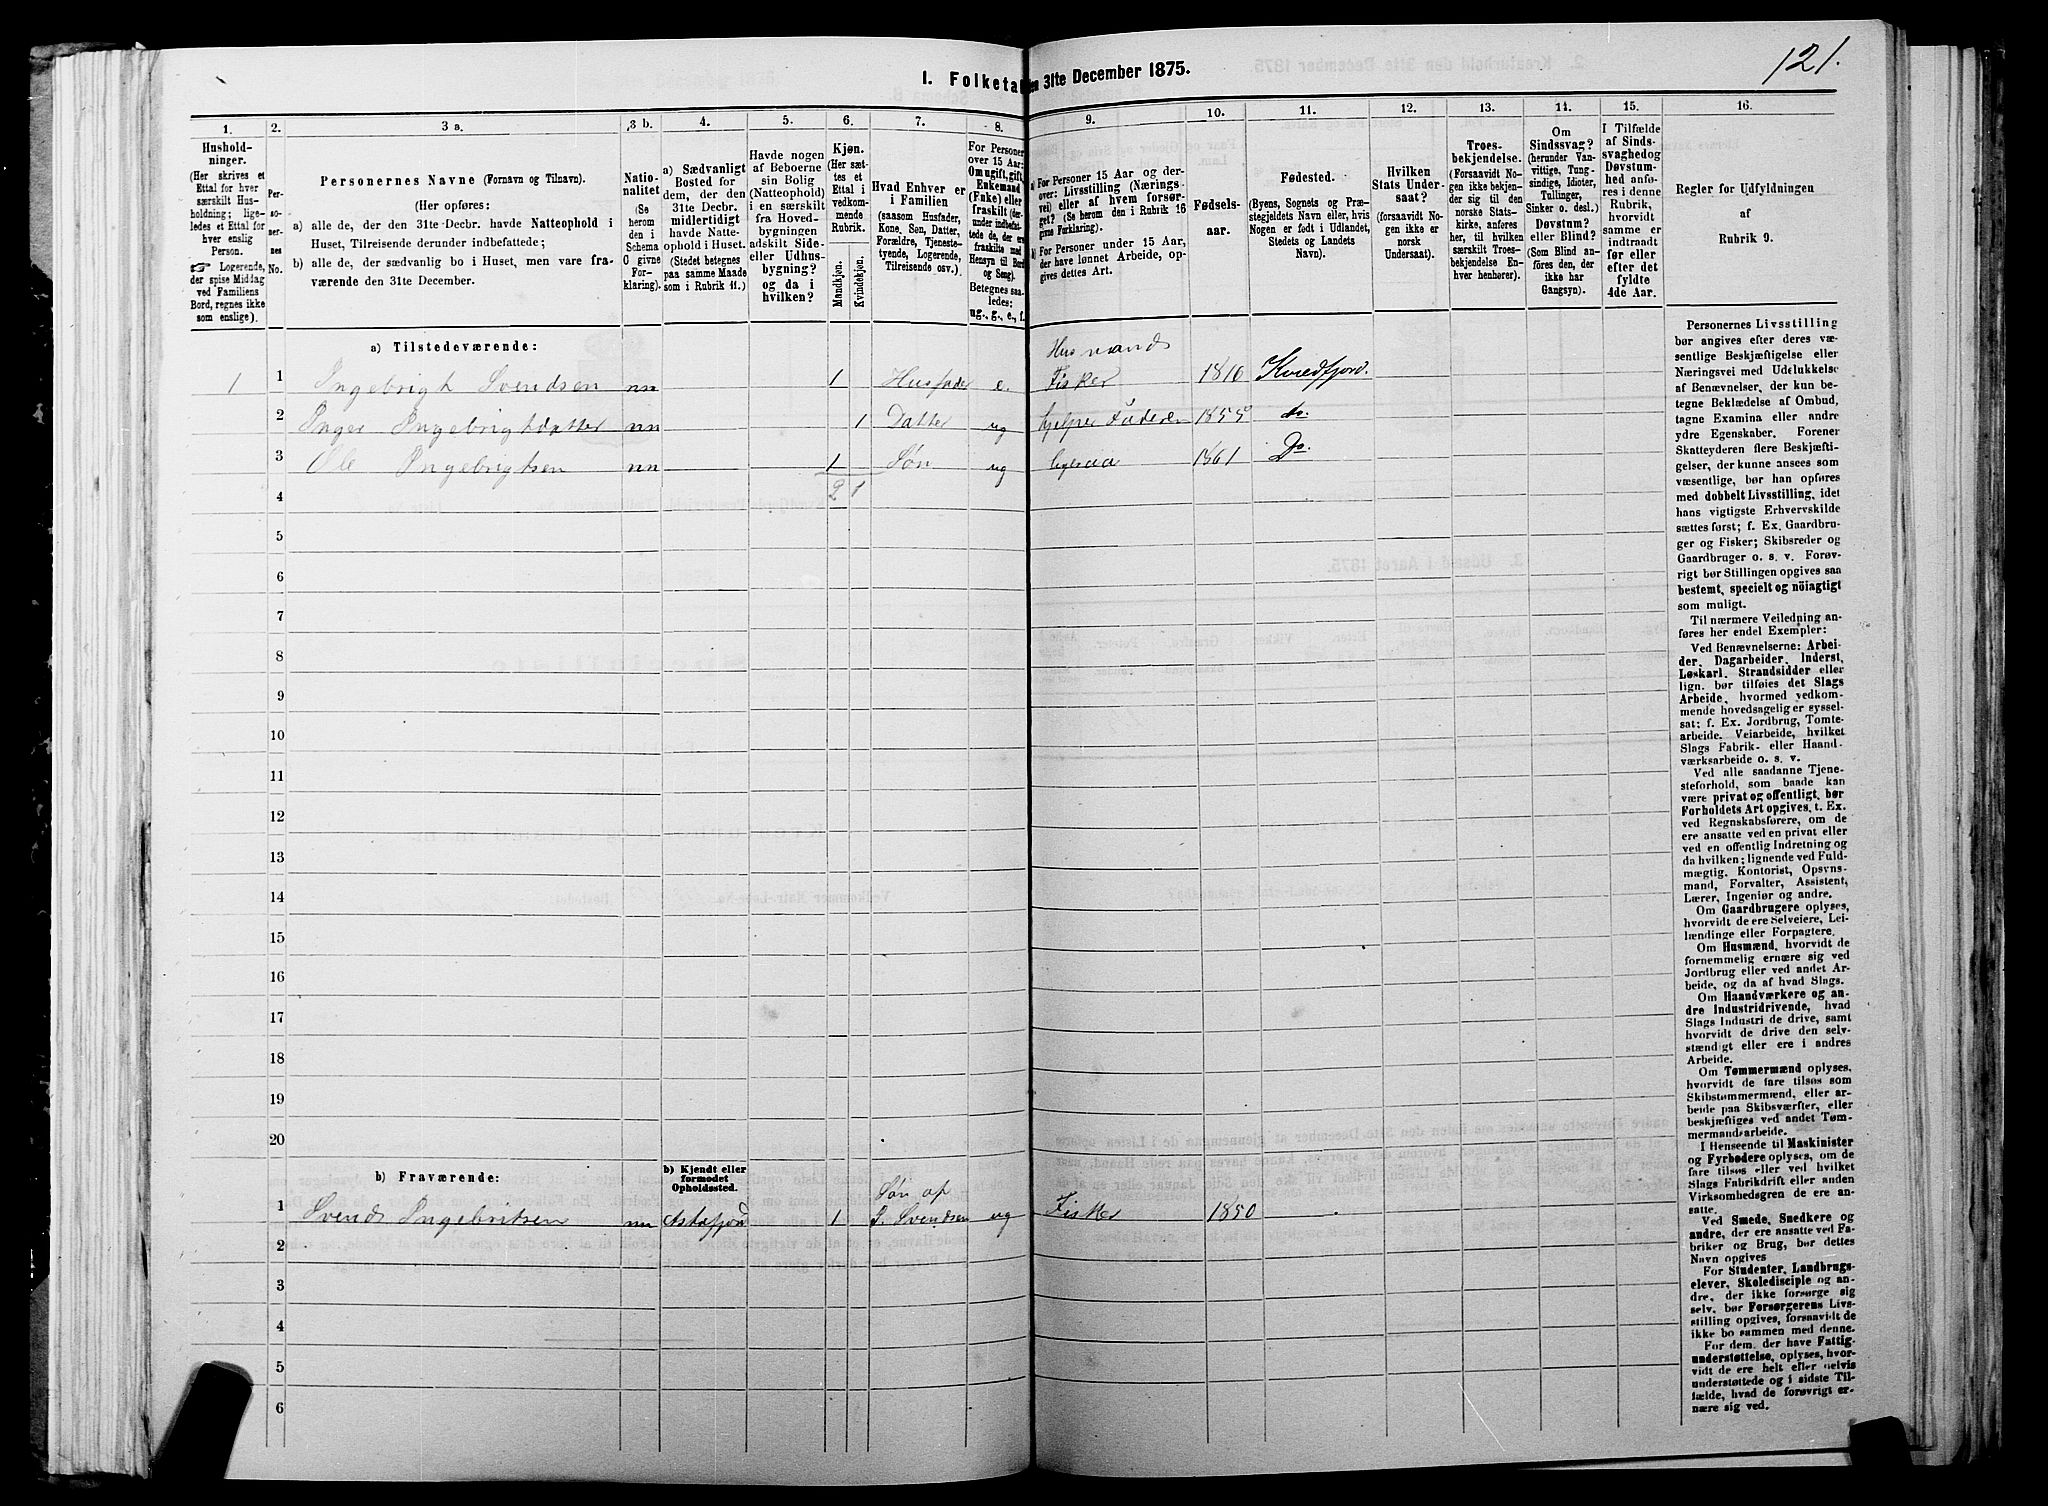 121.
I. Folketal den 31te December 1875.
1.
Hushold-
ninger.
(Her skrives et
Ettal for hver
særskilt Hus-
holdning; lige-
ledes et Ettal for
hver enslig
Person.
☞ Logerende,
der spise Middag
ved Familiens
Bord, regnes ikke
som enslige).
2.
Per-
so-
ner-
nes
No.
3 a.
Personernes Navne (Fornavn og Tilnavn).
(Her opføres:
a) alle de, der den 31te Decbr. havde Natteophold i
Huset, Tilreisende derunder indbefattede;
b) alle de, der sædvanlig bo i Huset, men vare fra-
værende den 31te December.
3 b.
Natio-
nalitet
(Se
herom
den i
Schema
C givne
For-
klaring).
4.
a) Sædvanligt
Bosted for
dem, der den
31te Decbr.
midlertidigt
havde Natte-
ophold i Huset.
(Stedet betegnes
paa samme Maade
som i Rubrik 11.)
5.
Havde nogen
af Beboerne
sin Bolig
(Natteophold)
i en særskilt
fra Hoved-
bygningen
adskilt Side-
eller Udhus-
bygning?
og da i
hvilken?
6.
Kjøn.
(Her sæt-
tes et
Ettal i
vedkom-
mende
Rubrik.
Mandkjøn.
Kvindekjøn.
7.
Hvad Enhver er
i Familien
(saasom Husfader,
Kone, Søn, Datter,
Forældre, Tjeneste-
tyende, Logerende,
Tilreisende osv.).
8.
For Personer
over 15 Aar:
Om ugift, gift,
Enkemand
(Enke) eller
fraskilt (der-
under indbefat-
tede de, der ere
fraskilte med
Hensyn til Bord
og Seng).
Betegnes saa-
ledes:
ug., g., e., f.
9.
a) For Personer 15 Aar og der-
over: Livsstilling (Nærings-
vei) eller af hvem forsør-
get? (Se herom den i Rubrik 16
givne Forklaring).
b) For Personer under 15 Aar,
der have lønnet Arbeide, op-
gives dettes Art.
10.
Fødsels-
aar.
11.
Fødested.
(Byens, Sognets og Præ-
stegjeldets Navn eller, hvis
Nogen er født i Udlandet,
Stedets og Landets
Navn).
12.
Hvilken
Stats Under-
saat?
(forsaavidt No-
gen ikke er
norsk
Undersaat).
13.
Troes-
bekjendelse.
(Forsaavidt No-
gen ikke bekjen-
der sig til den
norske Stats-
kirke, anføres
her, til hvilken
særskilt Troes-
bekjendelse En-
hver henhører).
14.
Om
Sindssvag?
(herunder Van-
vittige, Tung-
sindige, Idioter,
Tullinger,
Sinker o. desl.)
Døvstum?
eller Blind?
(Som Blind an-
føres den, der
ikke har
Gangsyn).
15.
I Tilfælde
af Sinds-
svaghed og
Døvstum-
hed anfø-
res i denne
Rubrik,
hvorvidt
samme er
indtraadt
før eller
efter det
fyldte
4de Aar.
16.
Regler for Udfyldningen
af
Rubrik 9.
a) Tilstedeværende:
1 1 Ingebrigt Svendsen nn 1 Husfader e. Husmand Fisker 1810 Kvedfjord.
2 Inger Ingebrigtdatter nn 1 Datter ug hjelper Faderen 1855 do.
3 Ole Ingebrigtsen nn 1 Søn ug ligesaa 1861 Do.
4 2 1
5
6
7
8
9
10
11
12
13
14
15
16
17
18
19
20
b) Fraværende:
b) Kjendt eller
formodet
Opholdssted.
1 Svend Ingebritsen nn Astafjord 1 Søn af I. Svendsen ug Fisker 1850
2
3
4
5
6
Personernes Livsstilling
bør angives efter deres væ-
sentlige Beskjæftigelse eller
Næringsvei med Udelukkelse
af Benævnelser, der kun be-
tegne Beklædelse af Ombud,
tagne Examina eller andre
ydre Egenskaber. Forener
Skatteyderen flere Beskjæfti-
gelser, der kunne ansees som
væsentlige, bør han opføres
med dobbelt Livsstilling, idet
hans vigtigste Erhvervskilde
sættes først; f. Ex. Gaardbru-
ger og Fisker; Skibsreder og
Gaardbruger o. s. v. Forøv-
rigt bør Stillingen opgives saa
bestemt, specielt og nöiagtigt
som muligt.
Til nærmere Veiledning an-
føres her endel Exempler:
Ved Benævnelserne: Arbei-
der, Dagarbeider, Inderst,
Løskarl, Strandsidder eller
lign. bør tilføies det Slags
Arbeide, hvormed vedkom-
mende hovedsagelig er syssel-
sat; f. Ex. Jordbrug, Tomte-
arbeide, Veiarbeide, hvilket
Slags Fabrik- eller Haand-
værksarbeide o. s. v.
Ved alle saadanne Tjene-
steforhold, som baade kan
være privat og offentligt, bør
Forholdets Art opgives, t. Ex.
ved Regnskabsførere, om de
ere ansatte ved en privat eller
ved en offentlig Indretning og
da hvilken; lignende ved Fuld-
mægtig, Kontorist, Opsyns-
mand, Forvalter, Assistent,
Lærer, Ingeniør og andre.
Om Gaardbrugere oplyses,
hvorvidt de ere Selveiere, Lei-
lændinge eller Forpagtere.
Om Husmænd, hvorvidt de
fornemmelig ernære sig ved
Jordbrug eller ved andet Ar-
beide, og da af hvad Slags.
Om Haandværkere og an-
dre Industridrivende, hvad
Slags Industri de drive, samt
hvorvidt de drive den selv-
stændigt eller ere i andres
Arbeide.
Om Tømmermænd oplyses,
hvorvidt de fare tilsøs som
Skibstømmermænd, eller ar-
beide paa Skibsværfter, eller
beskjæftiges ved andet Tøm-
mermandsarbeide.
I Henseende til Maskinister
og Fyrbødere oplyses, om de
fare tilsøs eller ved hvilket
Slags Fabrikdrift eller anden
Virksomhedsgren de ere an-
satte.
Ved Smede, Snedkere og
andre, der ere ansatte ved Fa-
briker og Brug, bør dettes
Navn opgives
For Studenter, Landbrugs-
elever, Skoledisciple og an-
dre, der ikke forsørge sig
selv, bør Forsørgerens Livs-
stilling opgives, forsaavidt de
ikke bo sammen med denne.
For dem, der have Fattig-
understøttelse, oplyses, hvor-
vidt de ere helt eller delvis
understøttede og i sidste Til-
fælde, hvad de forøvrigt er-
nære sig ved.